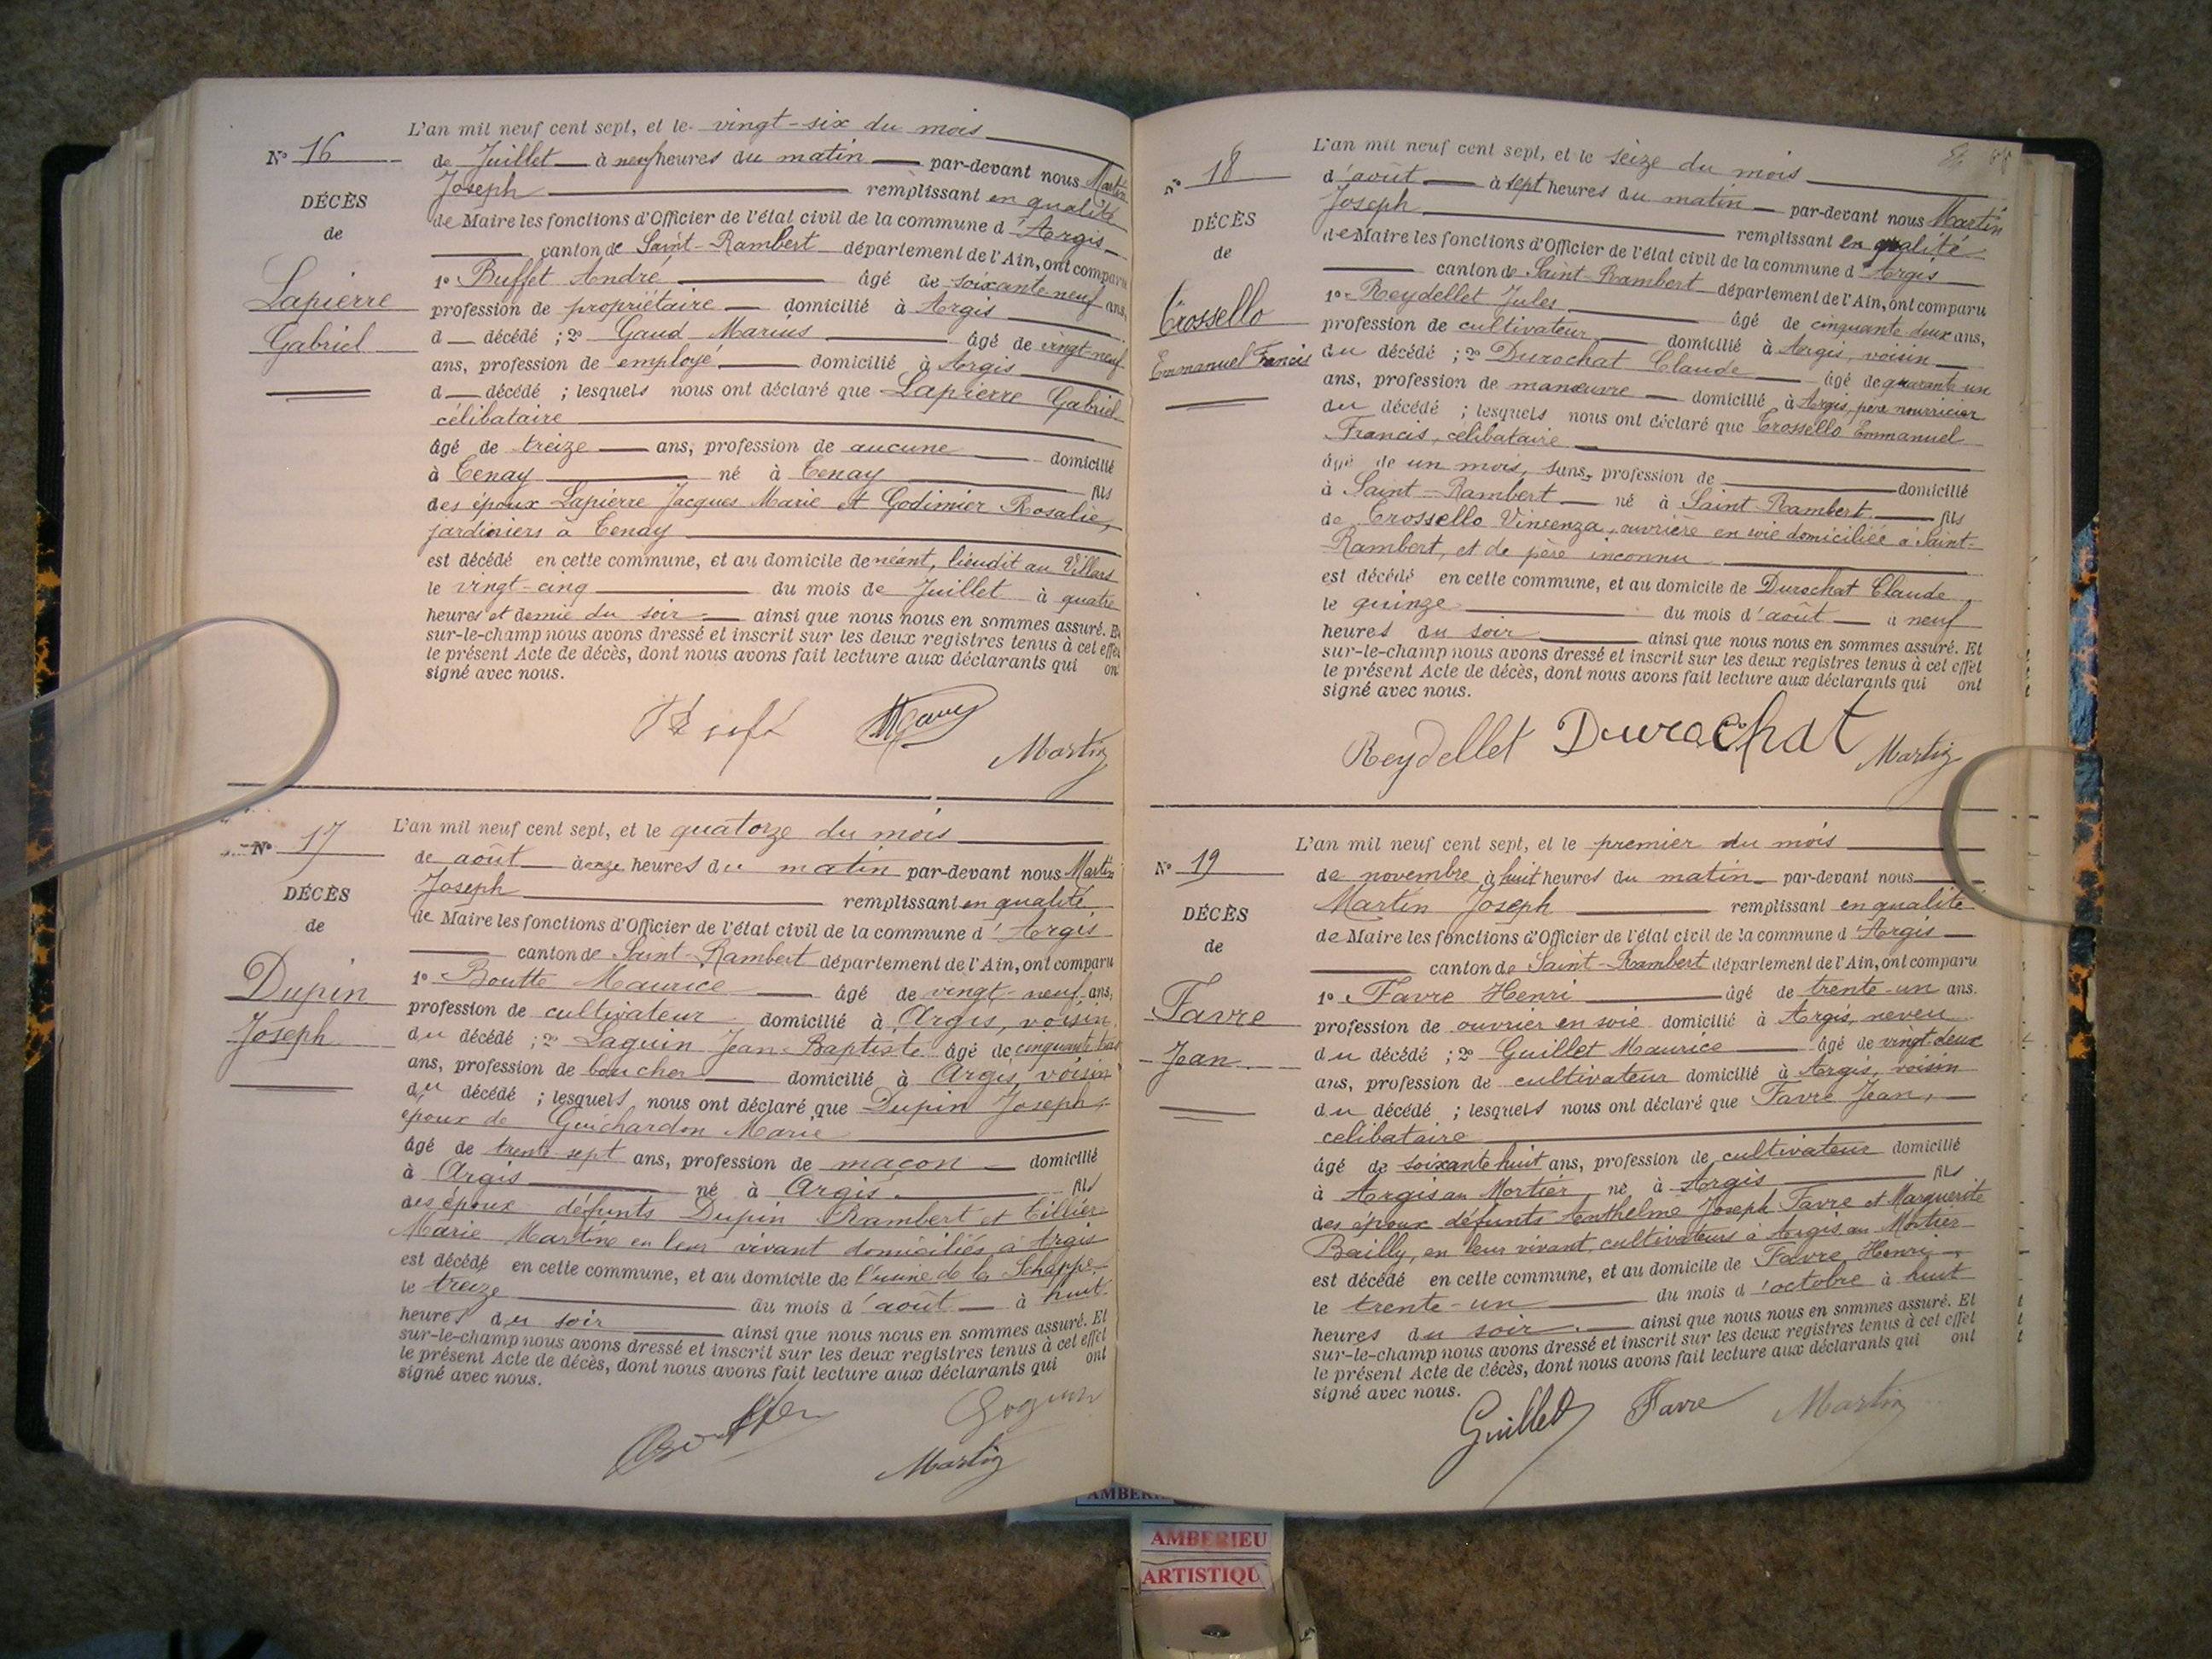 N° 16
DÉCÈS
de
Lapierre
Gabriel
L'an mil neuf cent sept, et le vingt-six du mois
de Juillet à neuf heures du matin par-devant nous Martin
Joseph remplissant en qualité
de Maire les fonctions d'Officier de l'état civil de la commune d'Argis
canton de Saint-Rambert département de l'Ain, ont comparu
1° Buffet André âgé de soixante neuf ans,
profession de propriétaire domicilié à Argis
d décédé ; 2° Gaud Marius âgé de vingt-neuf
ans, profession de employé domicilié à Argis
d décédé ; lesquels nous ont déclaré que Lapierre Gabriel
célibataire
âgé de treize ans, profession de aucune domicilié
à Tenay né à Tenay fils
des époux Lapierre Jacques Marie et Godimier Rosalie,
jardiniers à Tenay
est décédé en cette commune, et au domicile de néant, lieudit au Villars
le vingt-cinq du mois de Juillet à quatre
heures et demie du soir ainsi que nous nous en sommes assuré. Et
sur-le-champ nous avons dressé et inscrit sur les deux registres tenus à cet effet
le présent Acte de décès, dont nous avons fait lecture aux déclarants qui ont
signé avec nous.
Martin
N° 17
DÉCÈS
de
Dupin
Joseph
L'an mil neuf cent sept, et le quatorze du mois
de août à onze heures du matin par-devant nous Martin
Joseph remplissant en qualité
de Maire les fonctions d'Officier de l'état civil de la commune d'Argis
canton de Saint-Rambert département de l'Ain, ont comparu
1° Boutte Maurice âgé de vingt-neuf ans,
profession de cultivateur domicilié à Argis, voisin
du décédé ; 2° Laguin Jean-Baptiste âgé de cinquante trois
ans, profession de boucher domicilié à Argis, voisin
du décédé ; lesquels nous ont déclaré que Dupin Joseph,
époux de Guichardon Marie
âgé de trente-sept ans, profession de maçon domicilié
à Argis né à Argis fils
des époux défunts Dupin Rambert et Tillier
Marie Martine en leur vivant domiciliés à Argis
est décédé en cette commune, et au domicile de l'usine de la Schappe
le treize du mois d'août à huit
heures du soir ainsi que nous nous en sommes assuré. Et
sur-le-champ nous avons dressé et inscrit sur les deux registres tenus à cet effet
le présent Acte de décès, dont nous avons fait lecture aux déclarants qui ont
signé avec nous.
Martin
N° 18
DÉCÈS
de
Crossello
Emmanuel Francis
L'an mil neuf cent sept, et le seize du mois
d'août à sept heures du matin par-devant nous Martin
Joseph remplissant en qualité
de Maire les fonctions d'Officier de l'état civil de la commune d'Argis
canton de Saint-Rambert département de l'Ain, ont comparu
1° Reydellet Jules âgé de cinquante deux ans,
profession de cultivateur domicilié à Argis, voisin
du décédé ; 2° Durochat Claude âgé de quarante un
ans, profession de manœuvre domicilié à Argis, père nourricier
du décédé ; lesquels nous ont déclaré que Crossello Emmanuel
Francis, célibataire
âgé de un mois, sans profession de domicilié
à Saint-Rambert né à Saint-Rambert fils
de Crossello Vincenza, ouvrière en soie domiciliée à Saint-
Rambert, et de père inconnu
est décédé en cette commune, et au domicile de Durochat Claude
le quinze du mois d'août à neuf
heures du soir ainsi que nous nous en sommes assuré. Et
sur-le-champ nous avons dressé et inscrit sur les deux registres tenus à cet effet
le présent Acte de décès, dont nous avons fait lecture aux déclarants qui ont
signé avec nous.
Reydellet Durochat Martin
N° 19
DÉCÈS
de
Favre
Jean
L'an mil neuf cent sept, et le premier du mois
de novembre à huit heures du matin par-devant nous
Martin Joseph remplissant en qualité
de Maire les fonctions d'Officier de l'état civil de la commune d'Argis
canton de Saint-Rambert département de l'Ain, ont comparu
1° Favre Henri âgé de trente-un ans.
profession de ouvrier en soie domicilié à Argis, neveu
du décédé ; 2° Guillet Maurice âgé de vingt-deux
ans, profession de cultivateur domicilié à Argis, voisin
du décédé ; lesquels nous ont déclaré que Favre Jean,
célibataire
âgé de soixante huit ans, profession de cultivateur domicilié
à Argis au Mortier né à Argis fils
des époux défunts Anthelme Joseph Favre et Marguerite
Bailly, en leur vivant, cultivateurs à Argis au Mortier
est décédé en cette commune, et au domicile de Favre Henri
le trente-un du mois d'octobre à huit
heures du soir ainsi que nous nous en sommes assuré. Et
sur-le-champ nous avons dressé et inscrit sur les deux registres tenus à cet effet
le présent Acte de décès, dont nous avons fait lecture aux déclarants qui ont
signé avec nous.
Guillet Favre Martin
AMBERIEU
ARTISTIQU